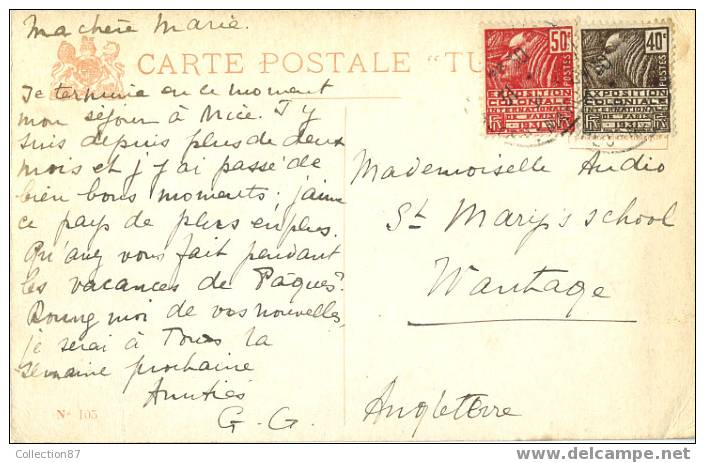 Ma chère Marie.
CARTE POSTALE "TU
Je termine en ce moment
mon séjour à Nice. J'y
suis depuis plus de deux
mois et j'y ai passé de
bien bons moments; j'aime
ce pays de plus en plus.
Qu'avez vous fait pendant
les vacances de Pâques?
moi de vos nouvelles,
je serai à Tours la
semaine prochaine
Amitiés
G. G.
Nº 105
50c
POSTES
EXPOSITION
COLONIALE
INTERNATIONALE
DE PARIS
1931
RF
40c
POSTES
EXPOSITION
COLONIALE
INTERNATIONALE
DE PARIS
1931
RF
Mademoiselle Audio
St Mary's school
Wantage
Angleterre
©Collection87
delcampe.net